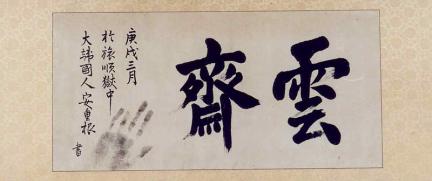 雲齋
庚戌三月
於旅順獄中
大韓國人安重根
書